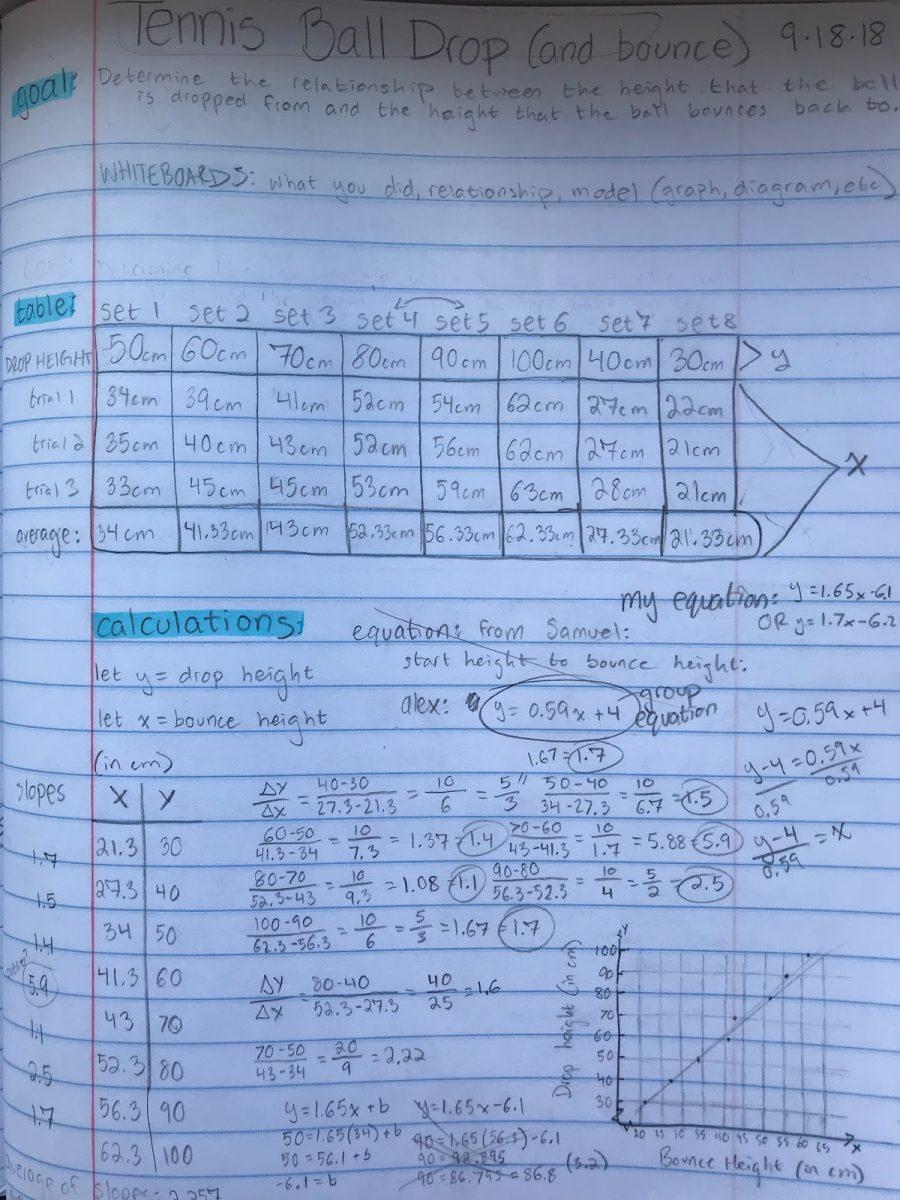 Tennis Ball Drop (and bounce) 9.18.18
goal: Determine the relationship between the height that the ball
is dropped from and the height that the ball bounces back to.
WHITEBOARDS: What you did, relationship, model (graph, diagram, etc)
table: set 1 set 2 set 3 set 4 set 5 set 6 set 7 set 8
DROP HEIGHT 50cm 60cm 70cm 80cm 90cm 100cm 40cm 30cm > y
trial 1 34cm 39cm 41cm 52cm 54cm 62cm 27cm 22cm
trial 2 35cm 40cm 43cm 52cm 56cm 62cm 27cm 21cm
x
trial 3 33cm 45cm 45cm 53cm 59cm 63cm 28cm 21cm
average: 34cm 41.33cm 43cm 52.33cm 56.33cm 62.33cm 27.33cm 21.33cm
my equation: y=1.65x-6.1
OR y=1.7x-6.2
calculations: equation: from Samuel:
start height to bounce height:
let y= drop height
alex: y= 0.59x+4 group equation
let x = bounce height
y=0.59x+4
y-4=0.59x
0.59 0.59
y-4/0.59 = x
(in cm)
1.67=1.7
slopes X Y
ΔY/ΔX = 40-30/27.3-21.3 = 10/6 = 5/3 " 50-40/34-27.3 = 10/6.7 = 1.5
60-50/41.3-34 = 10/7.3 = 1.37 = 1.4 70-60/43-41.3 = 10/1.7 = 5.88 = 5.9
80-70/52.3-43 = 10/9.3 = 1.08 = 1.1 90-80/56.3-52.3 = 10/4 = 5/2 = 2.5
100-90/62.3-56.3 = 10/6 = 5/3 = 1.67 = 1.7
ΔY/ΔX = 80-40/52.3-27.3 = 40/25 = 1.6
70-50/43-34 = 20/9 = 2.22
21.3 30
1.7
27.3 40
1.5
34 50
1.4
41.3 60
5.9
43 70
1.1
52.3 80
2.5
56.3 90
1.7
62.3 100
y=1.65x+b y=1.65x-6.1
50=1.65(34)+b 90=1.65(56.3)-6.1
50=56.1+b 90=92.895
-6.1=b 90=86.795=86.8 (3.2)
average of slope: 2.257
Y
Drop height (in cm)
100
90
80
70
60
50
40
30
20 25 30 35 40 45 50 55 60 65 X
Bounce Height (in cm)